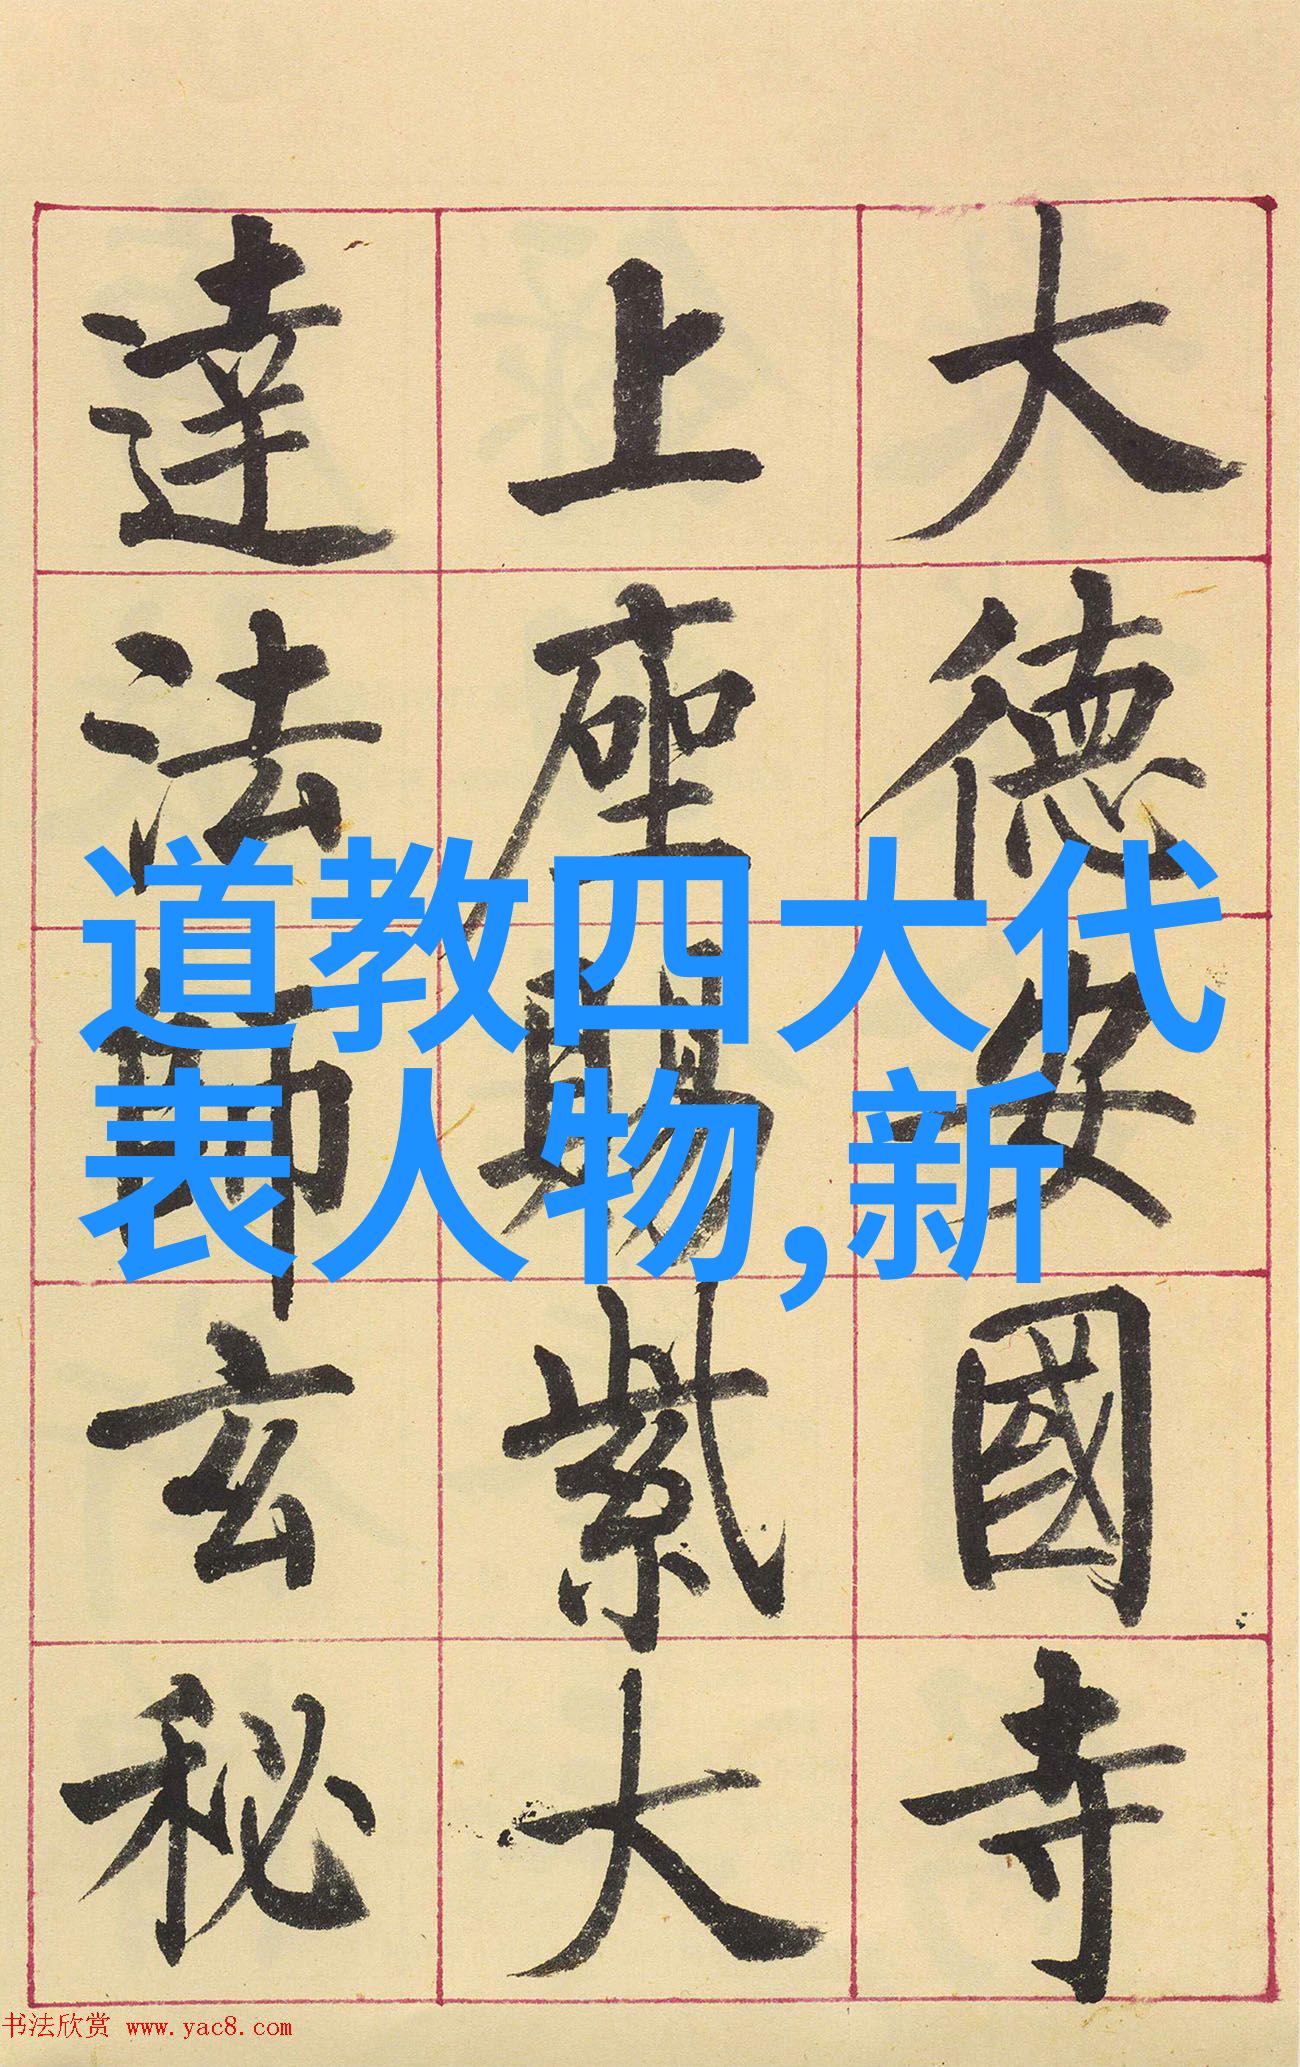 大德安國寺
上座賜紫大
達法師玄秘
道教四大代
表人物,新
书法欣赏 www.yac8.com